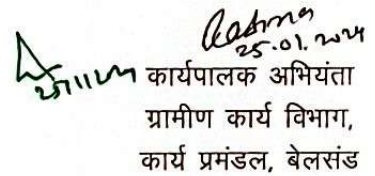 25.01.2024
कार्यपालक अभियंता
ग्रामीण कार्य विभाग,
कार्य प्रमंडल, बेलसंड